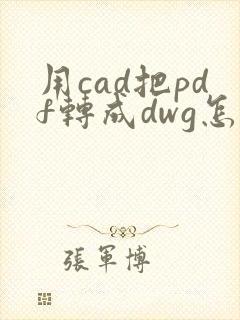 用cad把pd
f轉成dwg怎
張軍博